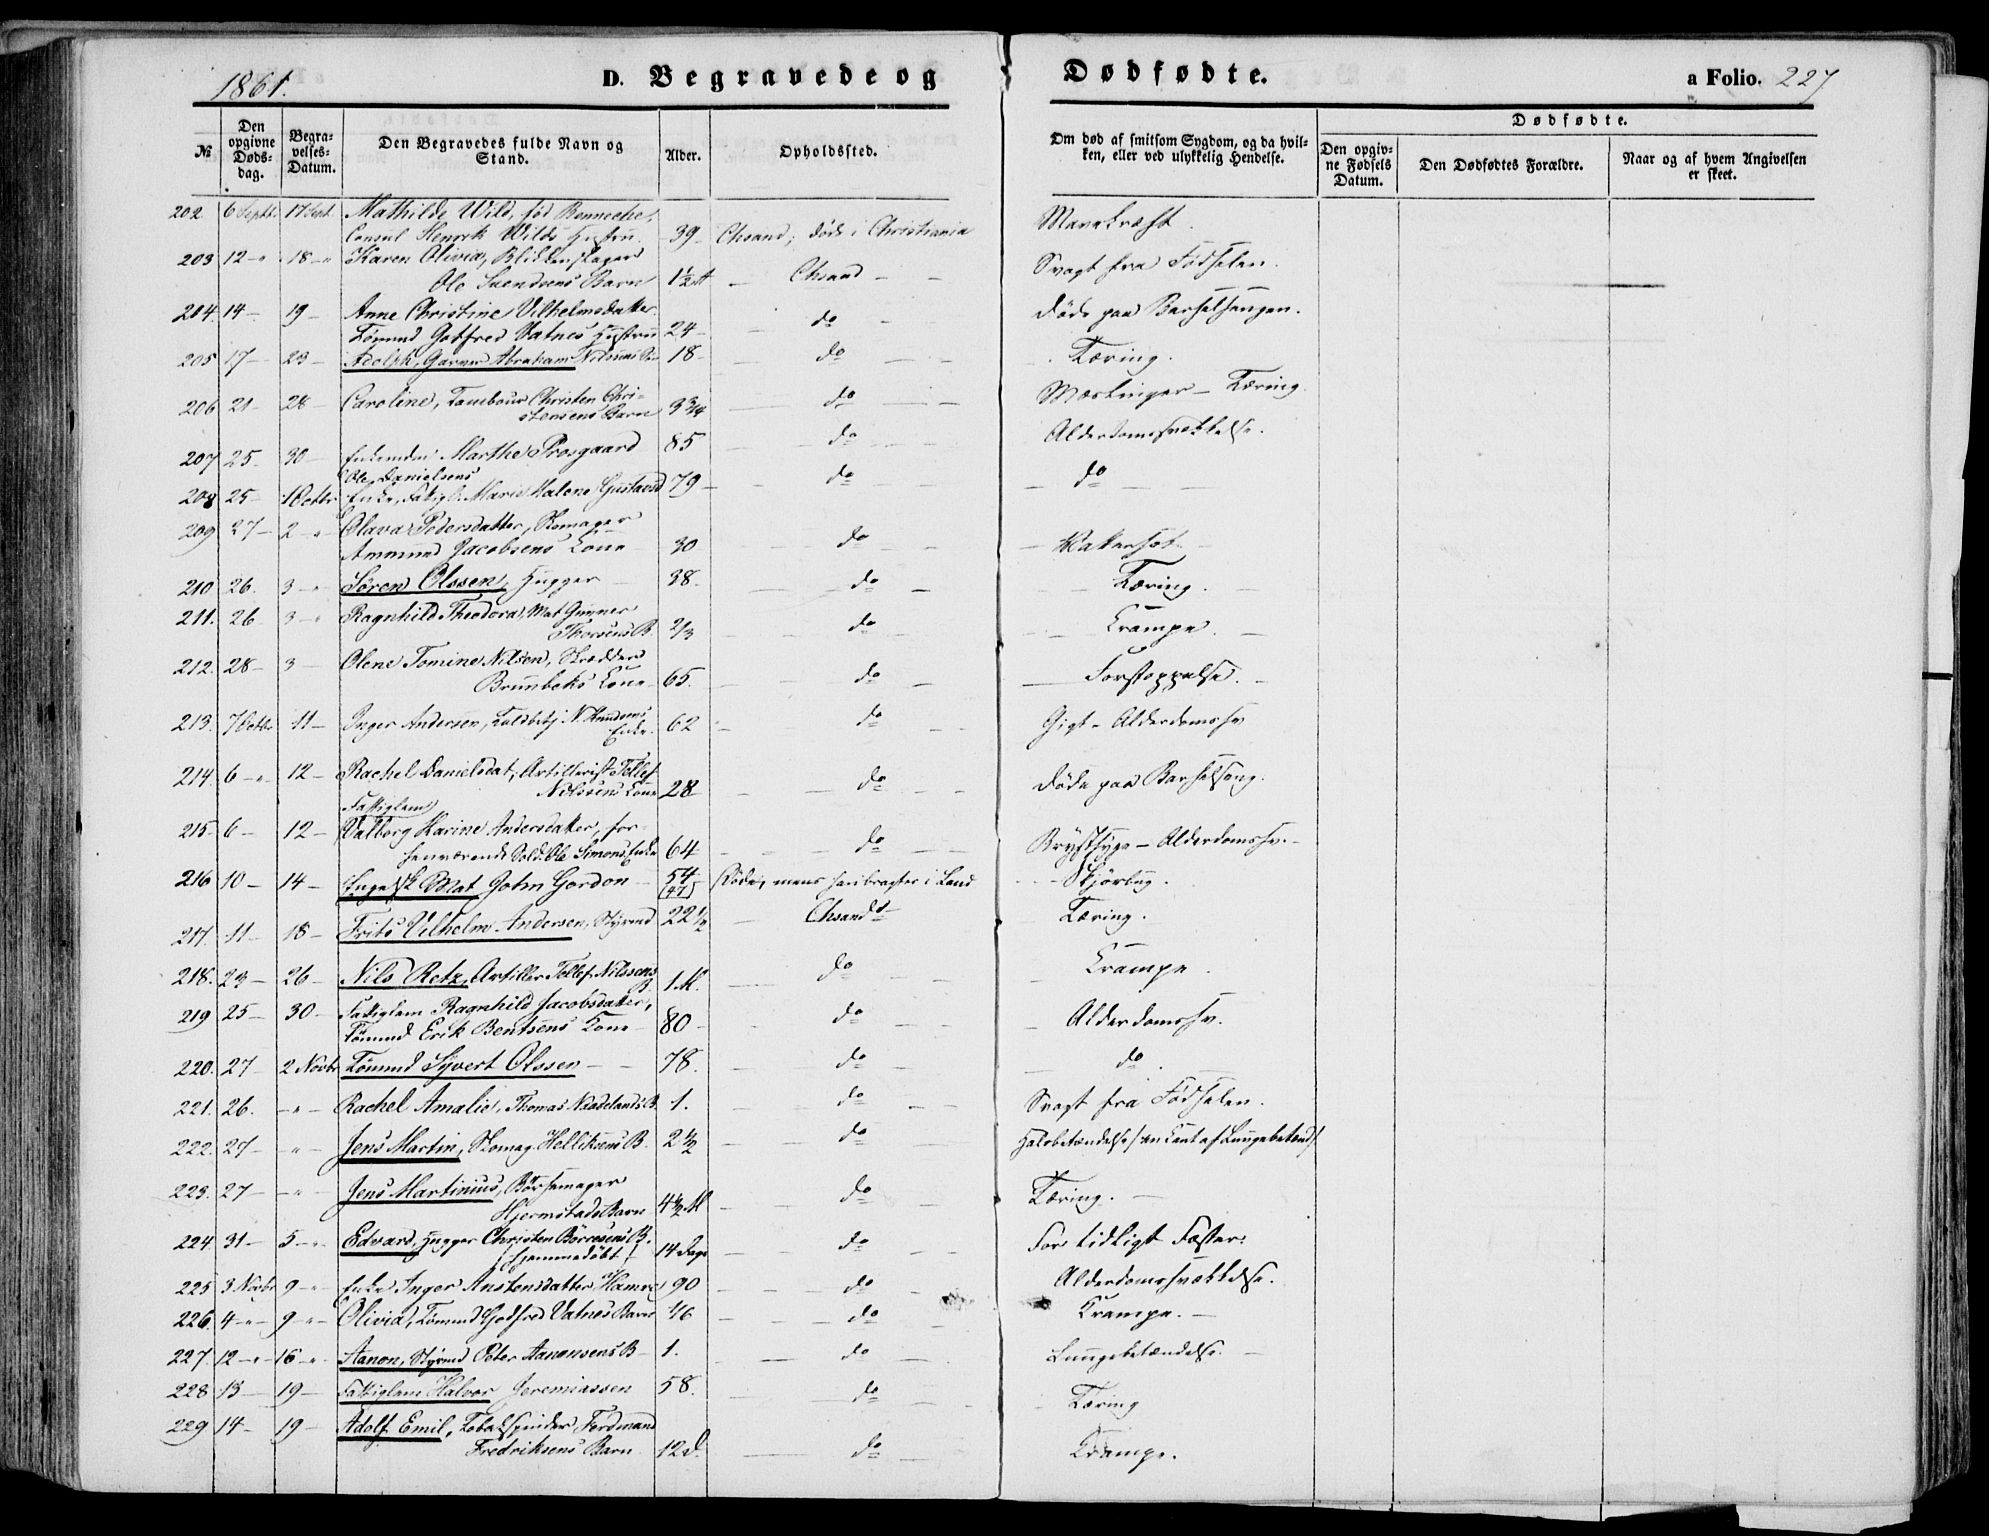 1861.
D. Begravede og Dødfødte.
a Folio. 227
№
Den opgivne Døds-dag.
Begra-velses-Datum.
Den Begravedes fulde Navn og Stand.
Alder.
Opholdssted.
Om død af smitsom Sygdom, og da hvil-ken, eller ved ulykkelig Hendelse.
Dødfødte.
Den opgiv-ne Fødsels Datum.
Den Dødfødtes Forældre.
Naar og af hvem Angivelsen er skeet.
202 6 Septbr 17 Sept. Mathilde Wild, fød Benneche,
Consul Henrik Wilds Hustru 39 Chsand; døde i Christiania
203 12 " 18 " Karen Olivia, Blikkenslager
Ole Svendsens Barn 1½ Chsand Svagt fra Fødselen.
204 14 19 Anne Christine Vilhelmsdatter
Tømmd Gotfred Vatnes Hustru 24 do døde paa Barselsengen.
205 17 23 Adolph, Garver Abraham Nilsens 18 do Tæring.
206 21 28 Caroline, Tambour Christen Chri-
stensens Barn 3¾ do Mæslinger – Tæring
207 25 30 Marthe Prosgaard 85 do Alderdomssvækkelse.
Ole Danielsens
208 25 1 Octbr Enke, Marie Malene Gustavsd 79 do do
209 27 2 " Olava Pedersdatter, Skomager
Ammund Jacobsens Kone 30 do Vatersot
210 26. 3 " Søren Olssen, Hugger 38. do Tæring.
211. 26 3 " Ragnhild Theodora, Mat Gunner
Thorsens B. 2/3 do Krampe.
212. 28 3 Olene Tomine Nilsen, Skrædder
Brunbeks Kone 65. do Forstoppelse.
213. 7 Octbr 11 Inger Andersen, Toldbetj N. Knudsens
Enke. 62 do Gigt – Alderdomssv
214. 6 " 12 Rachel Danielsdat, Artillerist Tellef
Nilssens Kone 28 do døde paa Barselseng.
Fattiglem
215. 6 12 Valborg Karine Andersdatter, for-
henværende Sold. Ole Simons Enke 64 do Brystsyge – Alderdomssv.
216 10 14 Engelsk Mat John Gordon 54 (47) Døde, mens han bragtes i Land Skjørbug.
217. 11 18 Frits Vilhelm Andersen, Styrmd 22½ Chsand Tæring.
218. 23 26 Nils Retz, Artiller Tellef Nilssens
B. 1 M. do Krampe.
219 25 30 Fattiglem Ragnhild Jacobsdatter,
Tømmd Erik Bentsens Kone 80 do Alderdomssv.
220. 27 2 Novbr Tømmd Syvert Olssen 78. do do
221. 26. " Rachel Amalie, Thomas Naadelands B. 1. do Svagt fra Fødselen.
222. 27 " Jens Martin, Skomag. Helliksens B. 2½ do Halsbetændelse / en Art af Lungebetænd /
223. 27 " Jens Martinius, Børsemager
Hjermstads Barn 4½ M do Tæring.
224 31 5 " Edvard, Hugger Christen Børresens B.
hjemmedøbt 14 Dage do For tidligt Foster.
225 3 Novbr 9 " Enke Inger Anstensdatter Hamre 90 do Alderdomssvækkelse.
226. 4 " 9 " Olivia, Tømmd Godfred Vatnes Barn 1/6 do Krampe.
227. 12 " 16 " Aanon, Styrmd Peter Aanonsens B 1. do Lungebetændelse.
228 13 19 Fattiglem Halvor Jeremiassen 58. do Tæring
229 14 19 Adolf Emil, Tobakspinder Ferdinand
Fredriksens Barn 12 d. do Krampe.